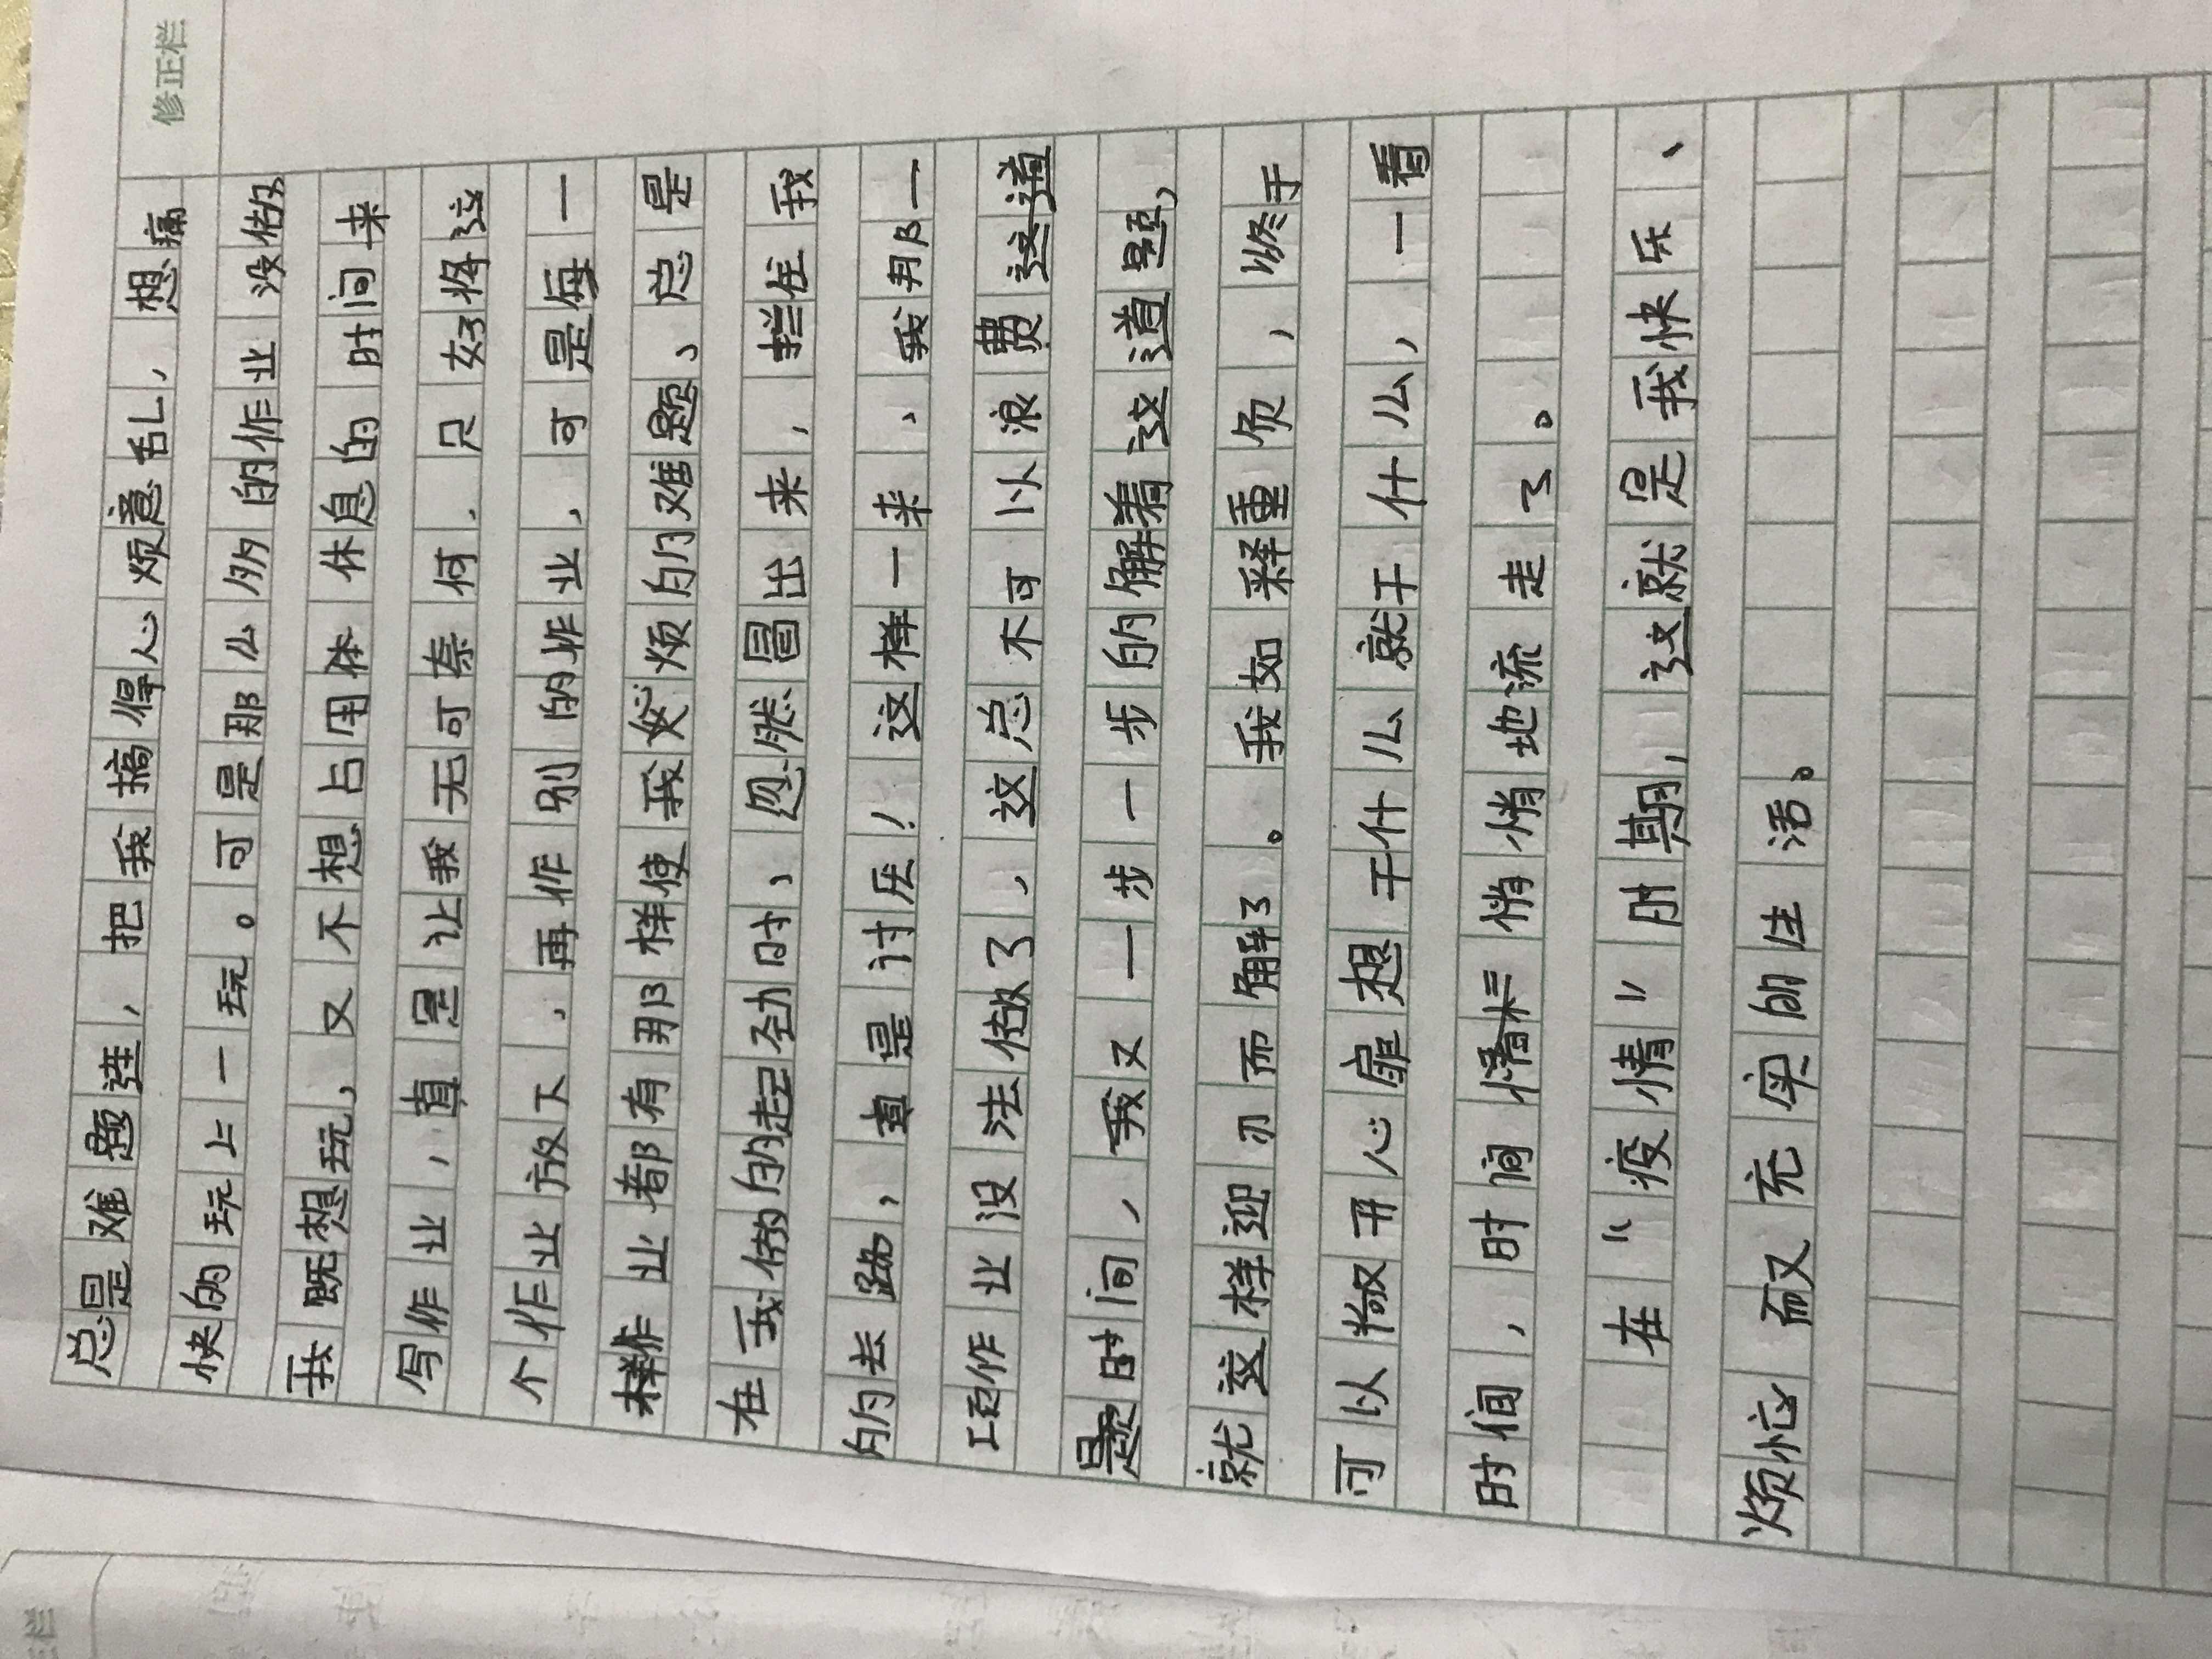 修正栏
总是难题连，把我搞得心烦意乱，想痛
快的玩上一玩。可是那么多的作业没做
我既想玩，又不想占用休息的时间来
写作业，真是让我无可奈何，只好将这
个作业放下，再作别的作业，可是每一
样作业都有那样使我发烦的难题、总是
在我做的起劲时、忽然冒出来，拦住我
的去路，真是讨厌！这样一来、我那一
作业没法做了、这总不可以浪费这道
题时间，我又一步一步的解着这道题，
就这样迎刃而解了。我如释重负，终于
可以敞开心扉想干什么就干什么，一看
时间，时间悄悄地流走了。
在"疫情"时期，这就是我快乐、
烦恼而又充实的生活。
栏